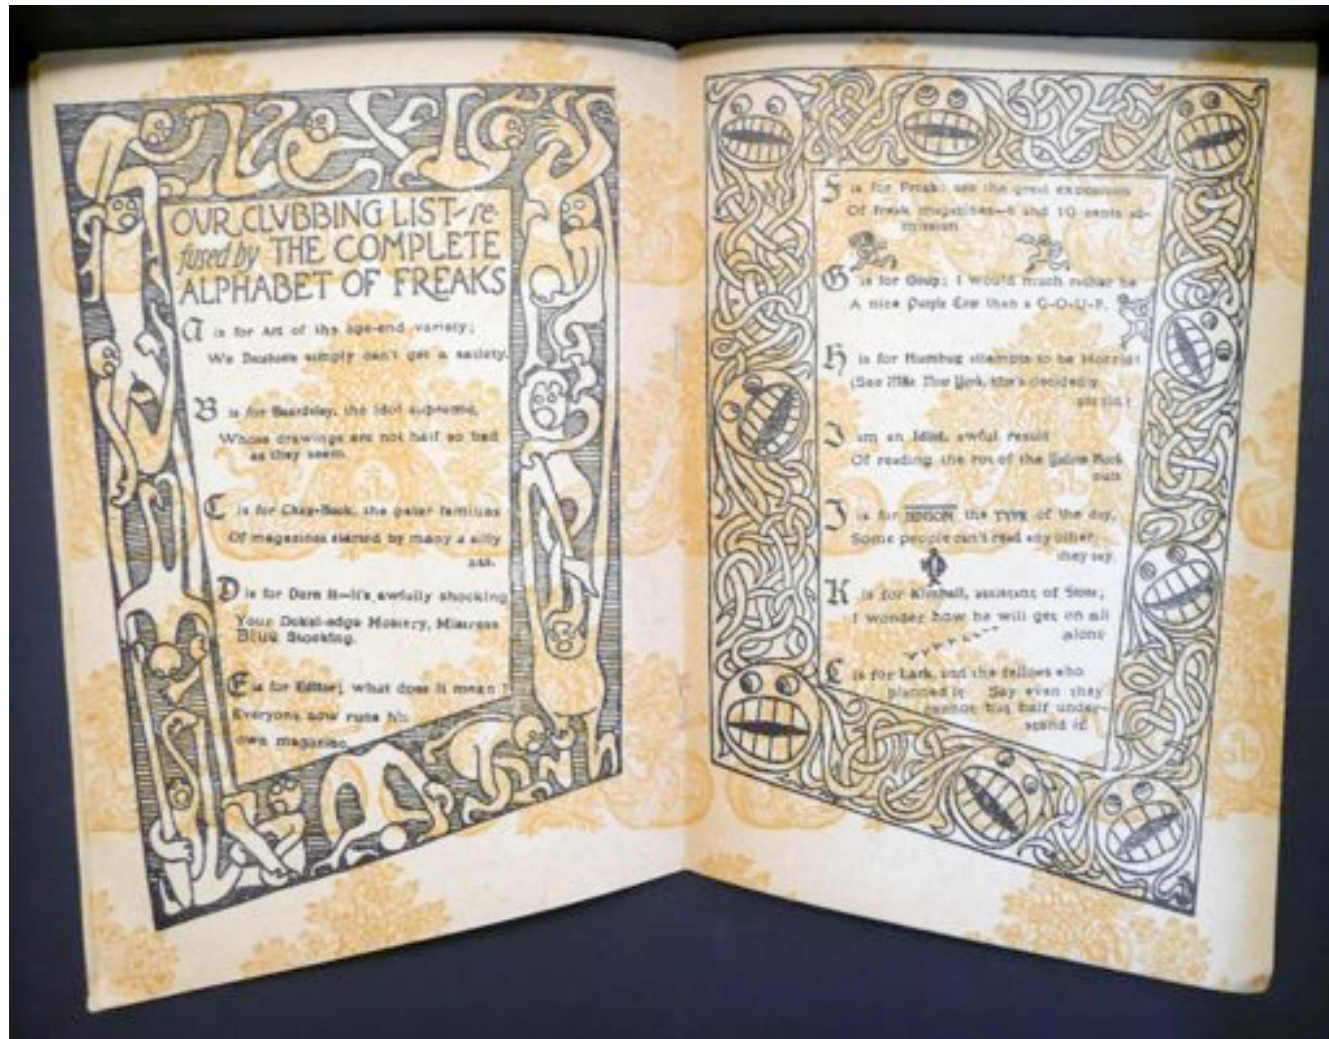 OUR CLVBBING LIST-re-
fused by THE COMPLETE
ALPHABET OF FREAKS
A is for Art of the age-end variety;
We Decadents simply can't get a satiety.
B is for Beardsley, the idol supreme,
Whose drawings are not half so bad
as they seem.
C is for Chap-Book, the pater familias
Of magazines started by many a silly
ass.
D is for Darn It—it's awfully shocking
Your Dekel-edge Hosiery, Mistress
Blue Stocking.
E is for Editor; what does it mean?
Everyone now runs his
own magazine.
F is for Freak; see the great
Of freak magazines—5 and 10 cents ad-
mission
G is for Goup; I would much rather be
A nice Purple Cow than a G-O-U-P.
H is for Humbug attempts to be Horrid:
(See Mlle. New York, she's decidedly
I am an Idiot, awful result
Of reading the rot of the Yellow Book
cult
J is for JENSON the TYPE of the day,
Some people can't read any other,
they say.
K is for Kimball, assistant of Stone;
I wonder how he will get on all
alone
L is for Lark, and the fellows who
planned it Say even they
cannot but half under-
stand it!